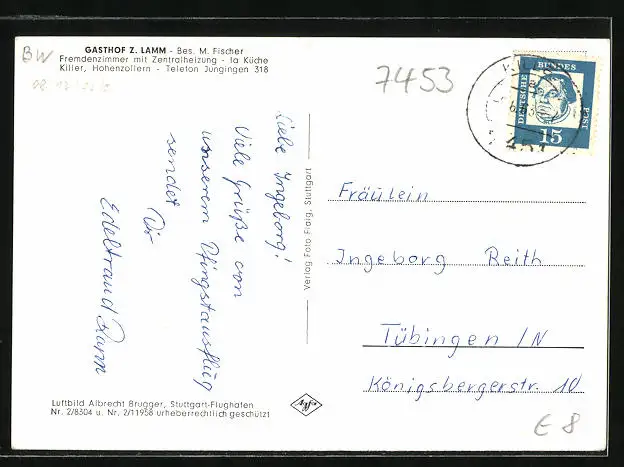 BW
GASTHOF Z. LAMM - Bes. M. Fischer
Fremdenzimmer mit Zentralheizung - Ia Küche
Killer, Hohenzollern - Telefon Jungingen 318
7453
DEUTSCHE BUNDES POST
15
Liebe Ingeborg!
Viele Grüße von
unserem Pfingstausflug
sendet
Dir
Edeltraud
Verlag Foto Flaig, Stuttgart
Fräulein
Ingeborg Reith
Tübingen /N
Königsbergerstr. 10
Luftbild Albrecht Brugger, Stuttgart-Flughafen
Nr. 2/8304 u. Nr. 2/11958 urheberrechtlich geschützt
Agfa
E 8